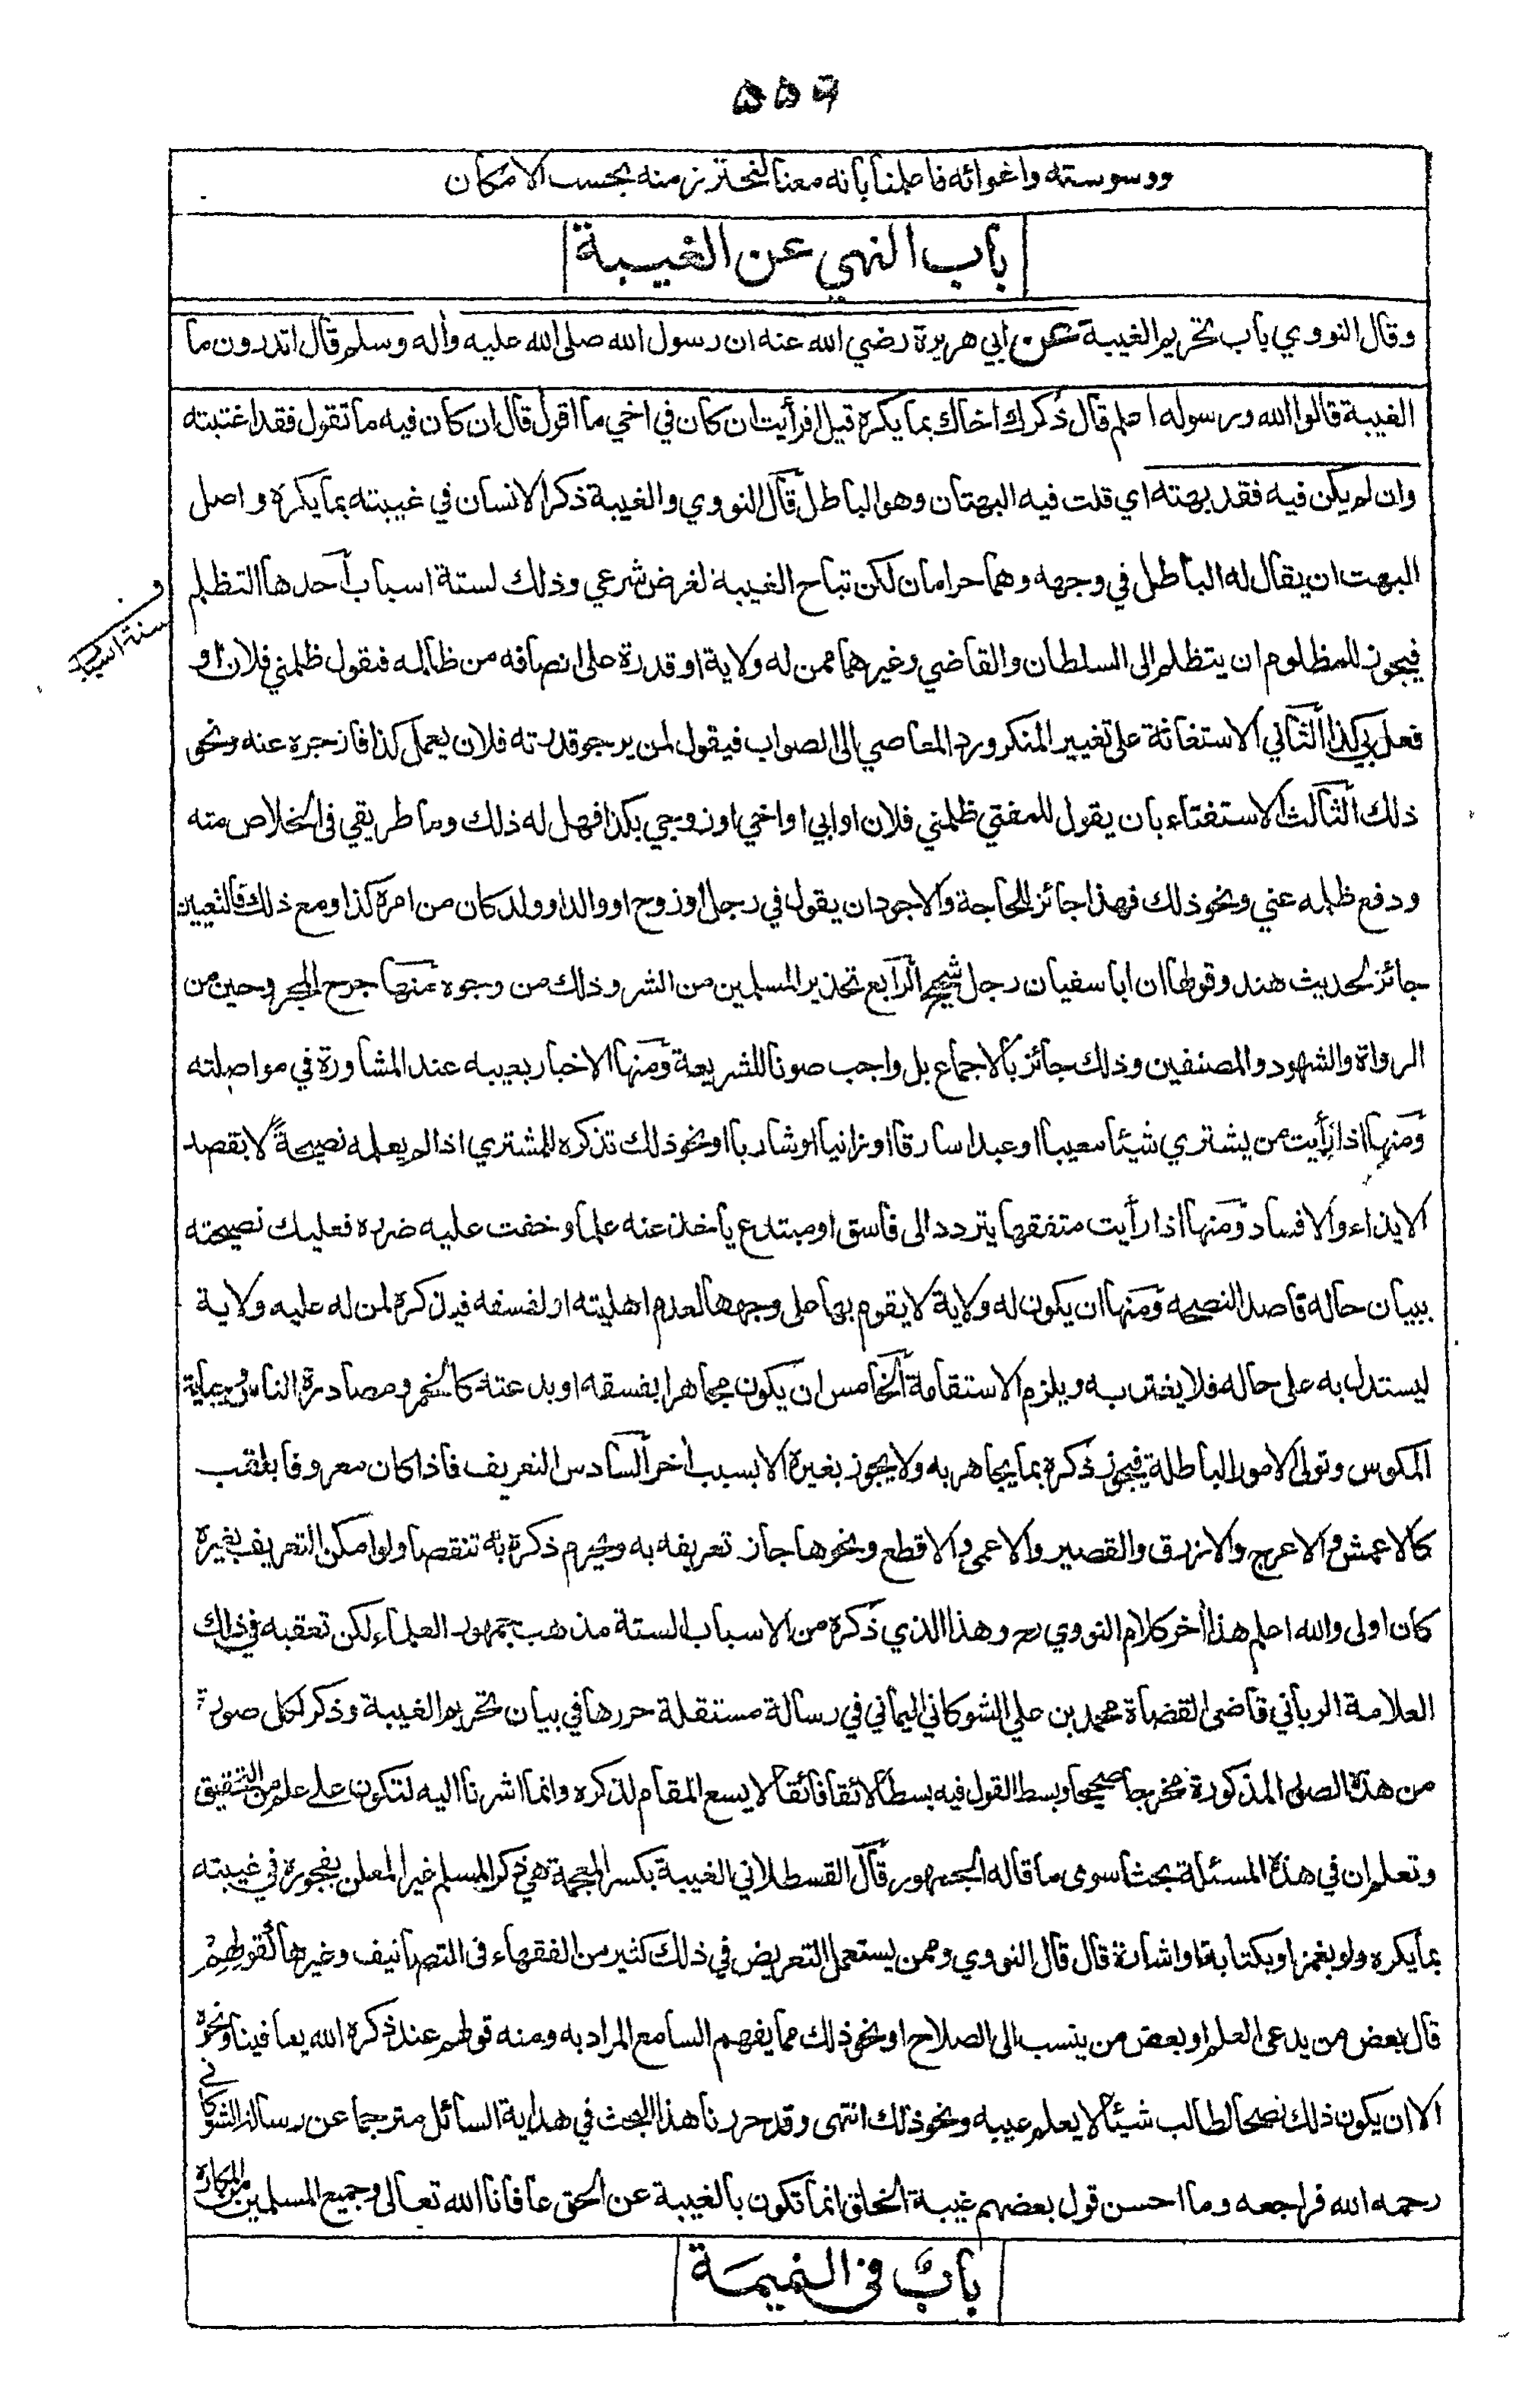 ۵۵۶
ووسوسته واغوائه فاعلمنا بانه معنا لنحترز منه بحسب الامكان
باب النهي عن الغيبة
وقال النووي باب تحريم الغيبة عن ابي هريرة رضي الله عنه ان رسول الله صلى الله عليه وأله وسلم قال اتدرون ما
الغيبة قالوا الله ورسوله اعلم قال ذكرك اخاك بما يكره قيل افرأيت ان كان في اخي ما اقول قال ان كان فيه ما تقول فقد اغتبته
وان لم يكن فيه فقد بهته اي قلت فيه البهتان وهو الباطل قال النووي والغيبة ذكر الانسان في غيبته بما يكره واصل
البهت ان يقال له الباطل في وجهه وهما حرامان لكن تباح الغيبة لغرض شرعي وذلك لستة اسباب احدها التظلم
فيجوز للمظلوم ان يتظلم الى السلطان والقاضي وغيرهما ممن له ولاية او قدرة على انصافه من ظالمه فيقول ظلمني فلان او
فعل بي كذا الثاني الاستغاثة على تغيير المنكر ورد المعاصي الى الصواب فيقول لمن يرجو قدرته فلان يعمل كذا فازجره عنه ونحو
ذلك الثالث الاستفتاء بان يقول للمفتي ظلمني فلان او ابي او اخي او زوجي بكذا فهل له ذلك وما طريقي في الخلاص منه
ودفع ظلمه عني ونحو ذلك فهذا جائز للحاجة والاجود ان يقول في رجل او زوج او والد او ولد كان من امره كذا ومع ذلك فالتعيين
جائز لحديث هند وقولها ان ابا سفيان رجل شحيح الرابع تحذير المسلمين من الشر وذلك من وجوه منها جرح المجروحين من
الرواة والشهود والمصنفين وذلك جائز بالاجماع بل واجب صونا للشريعة ومنها الاخبار بعيبه عند المشاورة في مواصلته
ومنها اذا رأيت من يشتري شيئا معيبا او عبدا سارقا او زانيا او شاربا او نحو ذلك تذكره للمشتري اذا لم يعلمه نصيحة لا بقصد
الايذاء والافساد ومنها اذا رأيت متفقها يتردد الى فاسق او مبتدع ياخذ عنه علما وخفت عليه ضرره فعليك نصيحته
ببيان حاله قاصد النصيحه ومنها ان يكون له ولاية لا يقوم بها على وجهها لعدم اهليته او لفسقه فيذكره لمن له عليه ولاية
ليستدل به على حاله فلا يغتر به ويلزم الاستقامة الخامس ان يكون مجاهرا بفسقه او بدعته كالخمر ومصادرة الناس وجباية
المكوس وتولى الامور الباطلة فيجوز ذكره بما يجاهر به ولا يجوز بغيره الا بسبب أخر السادس التعريف فاذا كان معروفا بلقب
كالاعمش والاعرج والازرق والقصير والاعمى والاقطع ونحوها جاز تعريفه به ويحرم ذكره به تنقصا ولو امكن التعريف بغيره
كان اولى والله اعلم هذا أخر كلام النووي رح وهذا الذي ذكره من الاسباب الستة مذهب جمهور العلماء لكن تعقبه في ذلك
العلامة الرباني قاضي القضاة محمد بن علي الشوكاني اليماني في رسالة مستقلة حررها في بيان تحريم الغيبة وذكر لكل صورة
من هذه الصور المذكورة مخرجا صحيحا وبسط القول فيه بسطا لائقا فائقا لا يسع المقام لذكره وانما اشرنا اليه لتكون على علم من التحقيق
وتعلم ان في هذه المسئلة بحثا سوى ما قاله الجمهور قال القسطلاني الغيبة بكسر المعجمة هي ذكر المسلم غير المعلن بفجوره في غيبته
بما يكره ولو بغمز او بكتابة او اشارة قال قال النووي وممن يستعمل التعريض في ذلك كثير من الفقهاء في التصانيف وغيرها كقولهم
قال بعض من يدعى العلم او بعض من ينسب الى الصلاح او نحو ذلك مما يفهم السامع المراد به ومنه قولهم عند ذكره الله يعافينا ونحوه
الا ان يكون ذلك نصحا لطالب شيئا لا يعلم عيبه ونحو ذلك انتهى وقد حررنا هذا البحث في هداية السائل مترجما عن رسالة الشوكاني
رحمه الله فراجعه وما احسن قول بعضهم غيبة الخلق انما تكون بالغيبة عن الحق عافانا الله تعالى وجميع المسلمين من المكاره
باب في النميمة